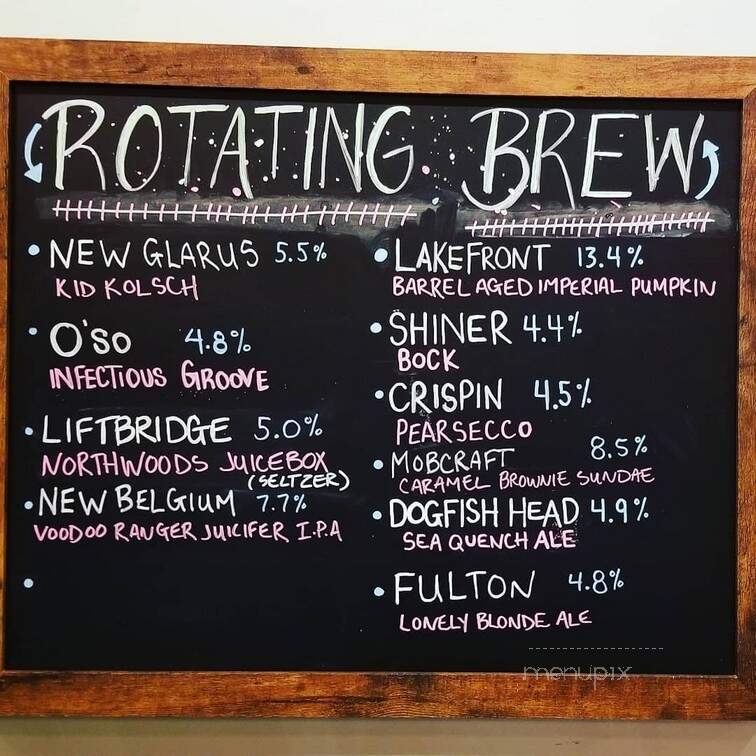 ROTATING BREW
• NEW GLARUS 5.5%
KID KOLSCH
• O'SO 4.8%
INFECTIOUS GROOVE
• LIFTBRIDGE 5.0%
NORTHWOODS JUICEBOX
(SELTZER)
• NEW BELGIUM 7.7%
VOODOO RANGER JUICIFER I.P.A
•
• LAKEFRONT 13.4%
BARREL AGED IMPERIAL PUMPKIN
• SHINER 4.4%
BOCK
• CRISPIN 4.5%
PEARSECCO
• MOBCRAFT 8.5%
CARAMEL BROWNIE SUNDAE
• DOGFISH HEAD 4.9%
SEA QUENCH ALE
• FULTON 4.8%
LONELY BLONDE ALE
menupix